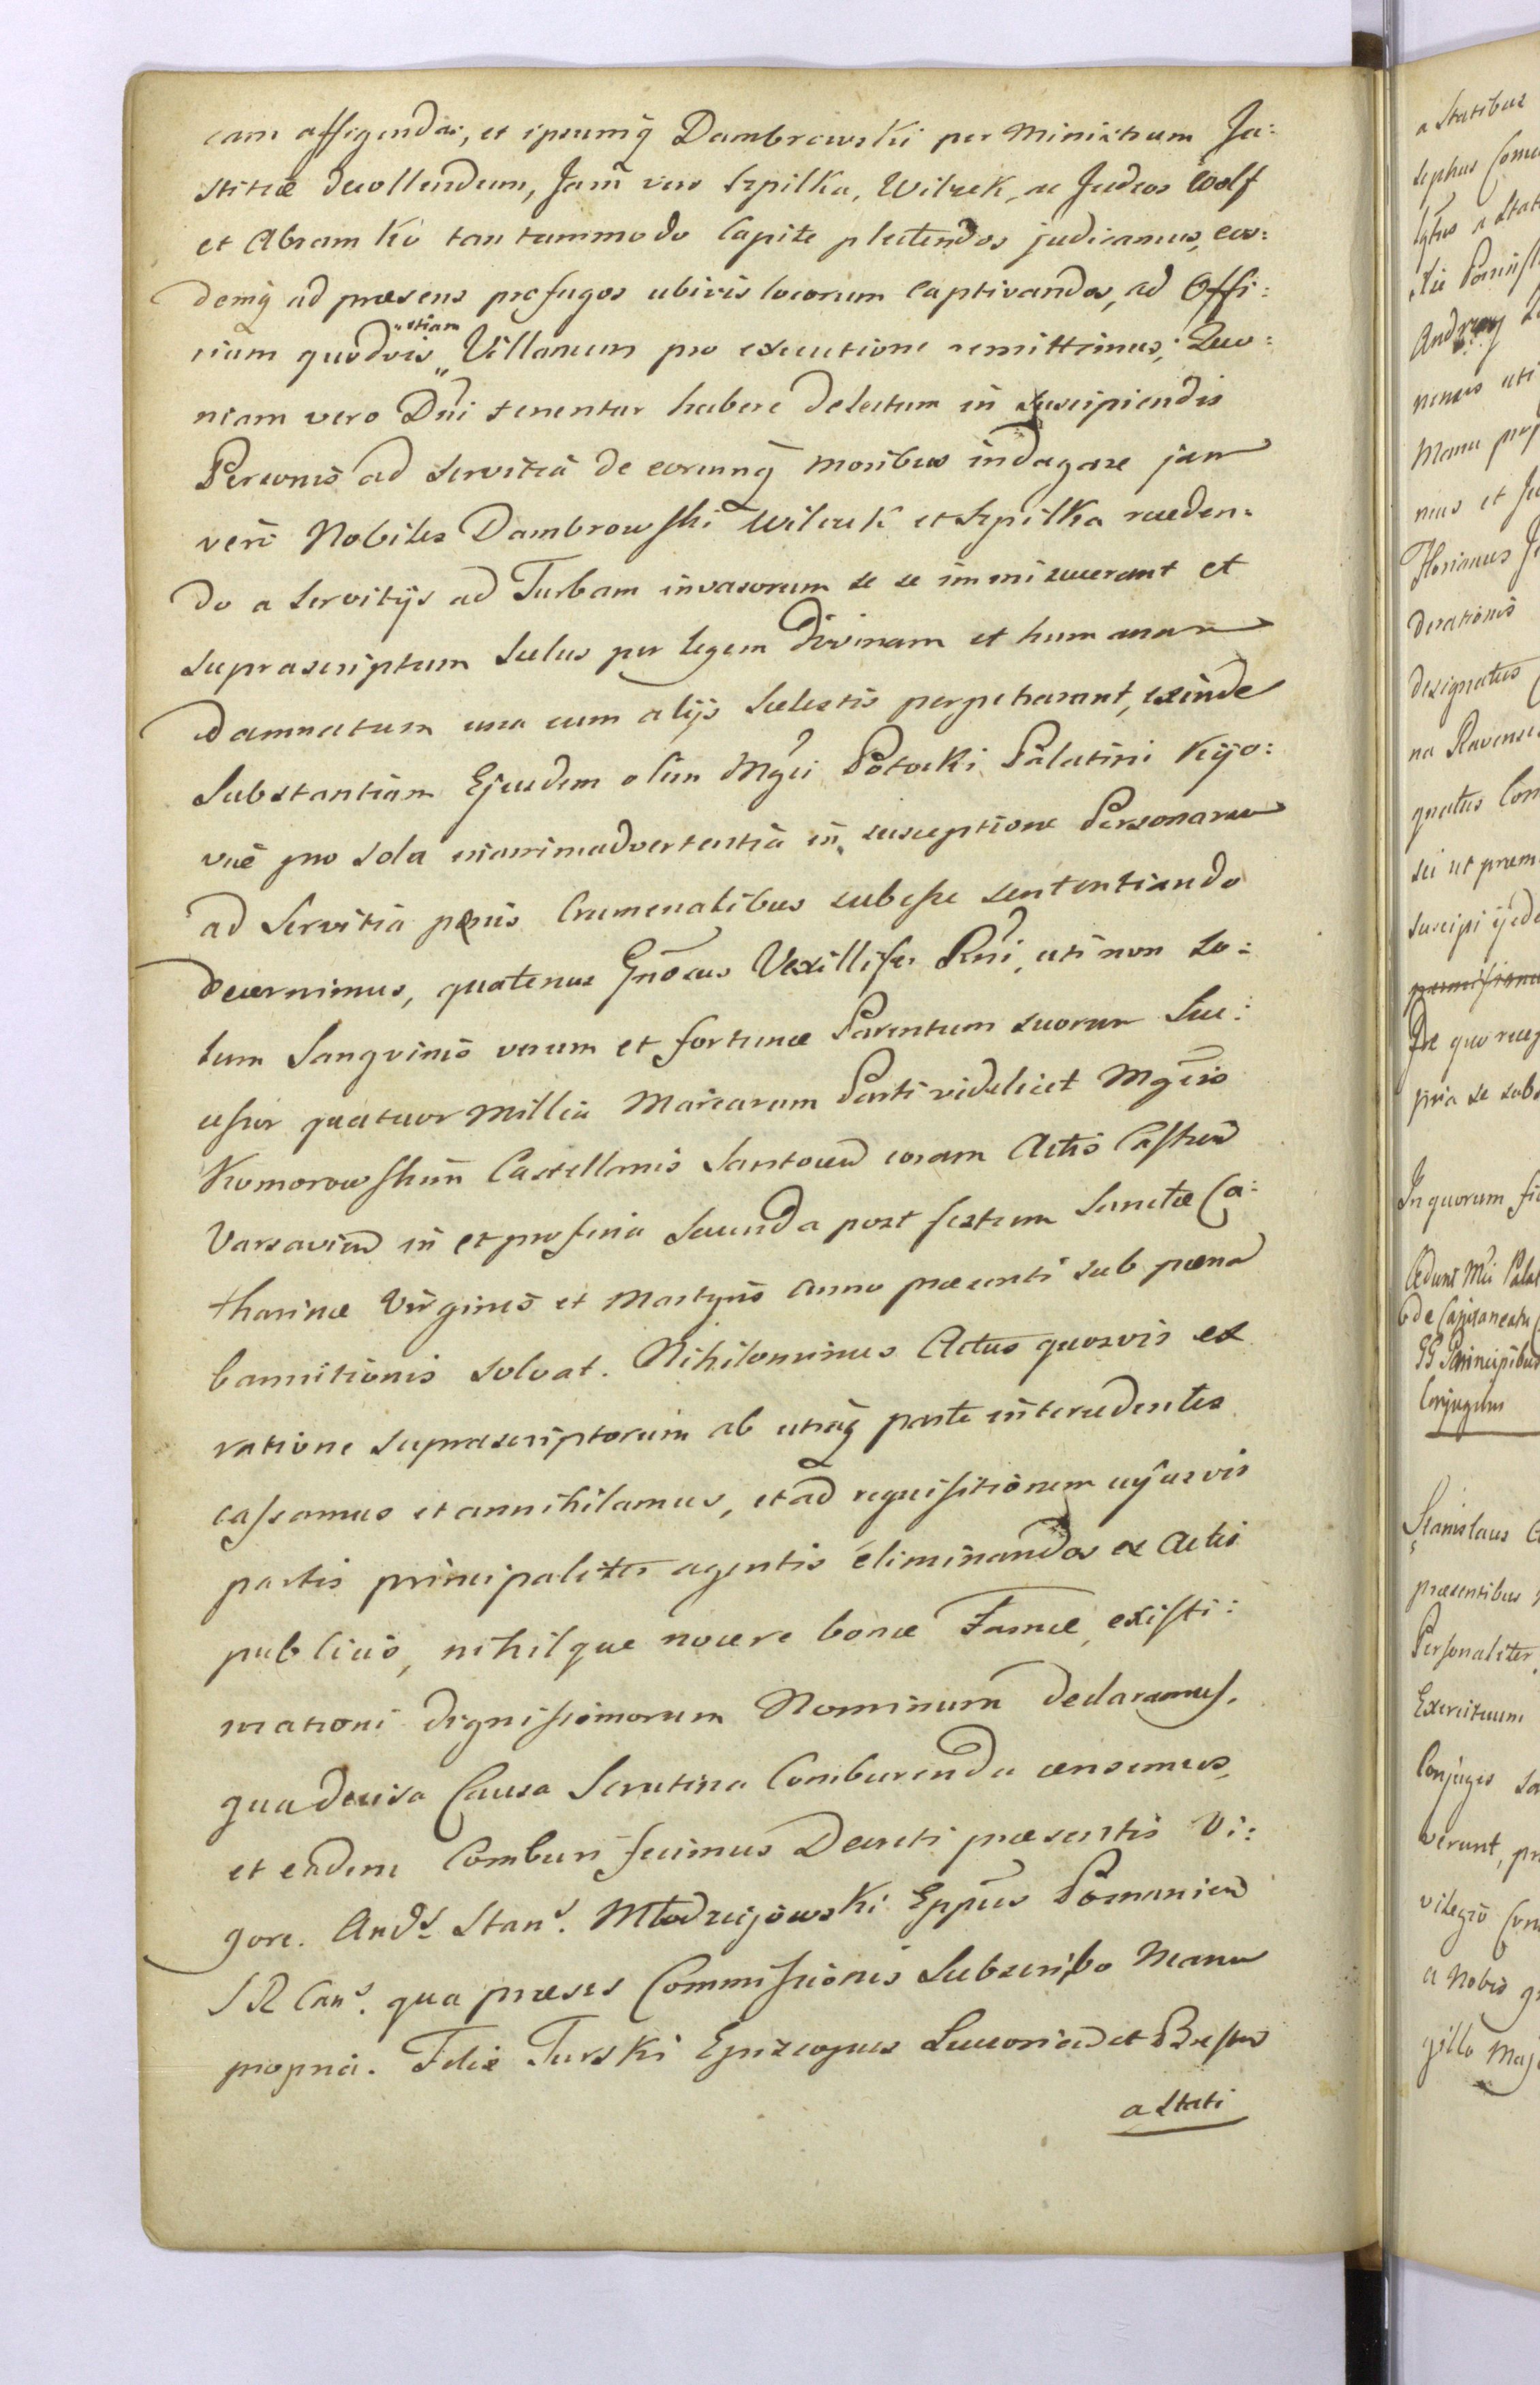 cam affigendas, et ipsumq̃ Dambrowski per Ministrum Ju:
stitiæ decollendum, Jam̃ vero Szpilka, Wilczek, ac Judeos Wolf
et Abramko tantummodo Capite plectendos judicamus, eos:
demq̃ ad præsens profugos ubivis locorum captivandos, ad Offi:
cium quodvis etiam Villanum pro executione remittimus; Quo:
niam vero Dñi tenentur habere delectum in suscipiendis
Personis ad Servitia de eorumq̃ moribus indagare jam
vero Nobiles Dambrowski Wilczek et Szpilka receden:
do a Servitijs ad Turbam invasorum se se immiscuerant et
suprascriptum Scelus per legem Divinam et humanam
Damnatum una cum alijs Scelestis perpetrarant, exinde
Substantiam Ejusdem olim Mgci Potocki Palatini Kijo:
viẽ pro sola inanimadvertentia in susceptione Personarum
ad Servitia pœnis Crumenalibus subesse sententiando
decernimus, quatenus Gñosus Vexillifer Rñi, uti non so:
lum Sangvinis verum et fortunæ Parentum suorum Suc:
cessor quatuor Millia Marcarum Parti videlicet Mgcis
Komorowskim Castellanis Santocen coram Actis Castren
Varsavien in et pro feria Secunda post festum Sanctæ Ca:
tharinæ Virginis et Martyris Anno præsenti sub pœna
bannitionis solvat. Nihilominus Actus quosvis ex
ratione suprascriptorum ab utraq̃ parte intercedentes
cassamus et annihilamus, et ad requisitionem cujusvis
partis principaliter agentis eliminandos ex Actis
publicis, nihilque nocere bonæ Famæ, existi:
mationi dignissimorum Nominum declaramus.
qua decisa Causa Scrutinia Comburenda censemus,
et eadem Comburi fecimus Decreti præsentis Vi:
gore. Andˢ Stanˢ. Młodziejowski Eppus Posnanien
S R Canˢ. qua præses Commissionis Subscribo Manu
propria. Felix Turski Episcopus Luceorien et Bresten
a Stati
a Statibus
nineis uti
Manu prop
nius et Ju
Florianus
derationis
designatus
na Ravensis
gnatus Com
sii ut præm
suscipi ijsde
De quo recep
pria se subs
In quorum fi
Cedunt Mci Palat
de Capitaneatu
GG Principibus
Conjugum
Stanislaus
præsentibus
Personaliter
Exercituum
Conjuges
verunt, pr
vilegio
a Nobis
gillo Maj